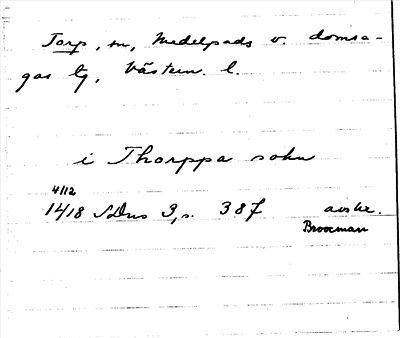 Torp, sn, Medelpads v. domsa-
gas tg, Västern. l.
i Thorppa sokn
4/12
1418 SDns 3, s. 387 avskr.
Brocman